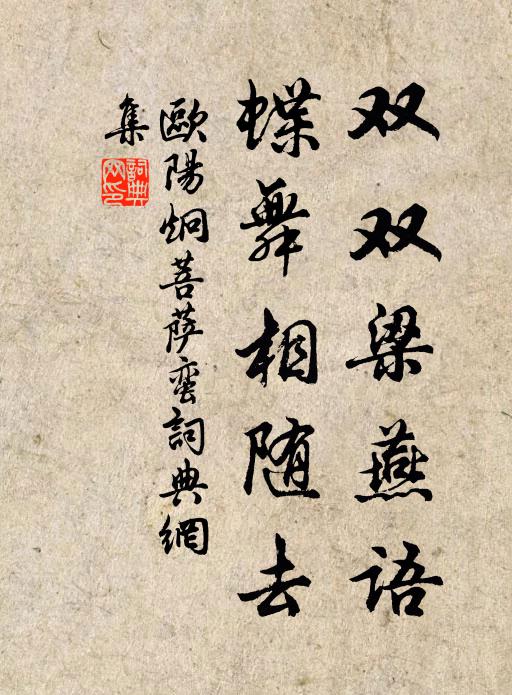 双双梁燕语
蝶舞相随去
歐陽炯菩薩蠻詞典網
集
詞典
网印